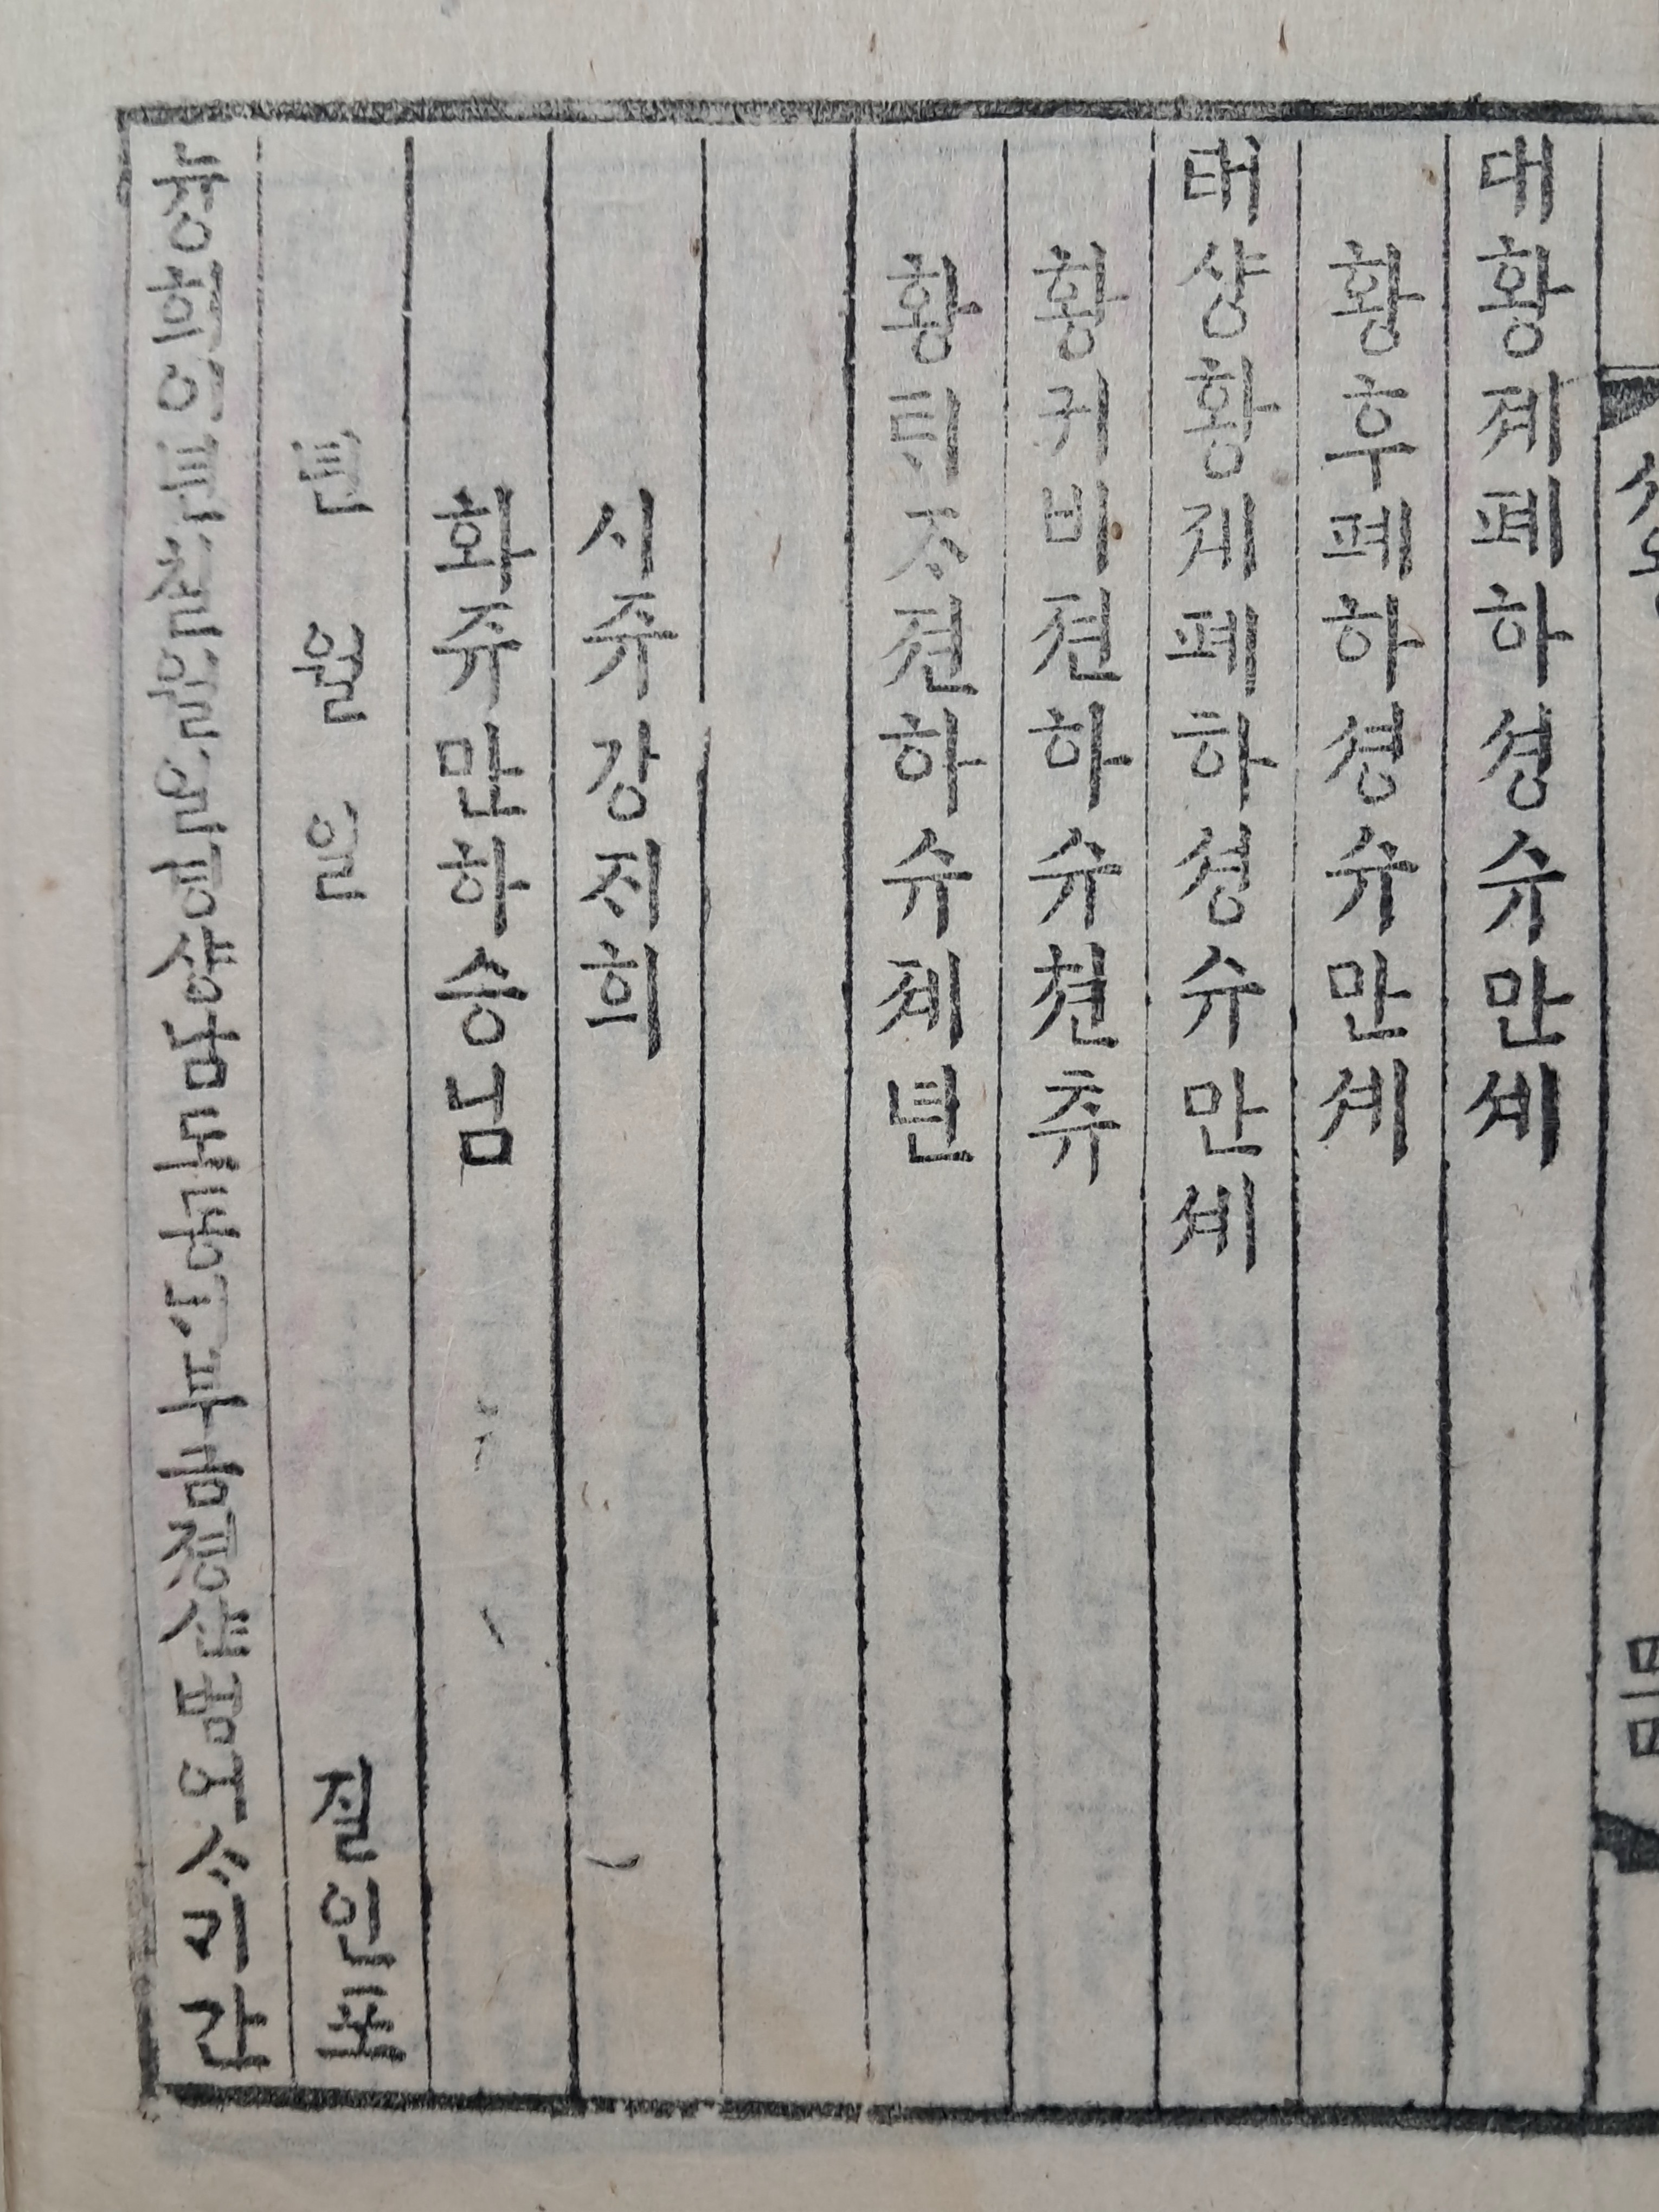 대황졔폐하셩슈만셰
황후폐하셩슈만셰
태샹황졔폐하셩슈만셰
황귀비젼하슈쳔츄
황ᄐᆡᄌᆞ젼하슈졔년
시쥬강ᄌᆡ희
화쥬만하승님
년 월 일 졀인포
늉희이년칠월일경샹남도동ᄂᆡ부금졍산범어ᄉᆞᄀᆡ간